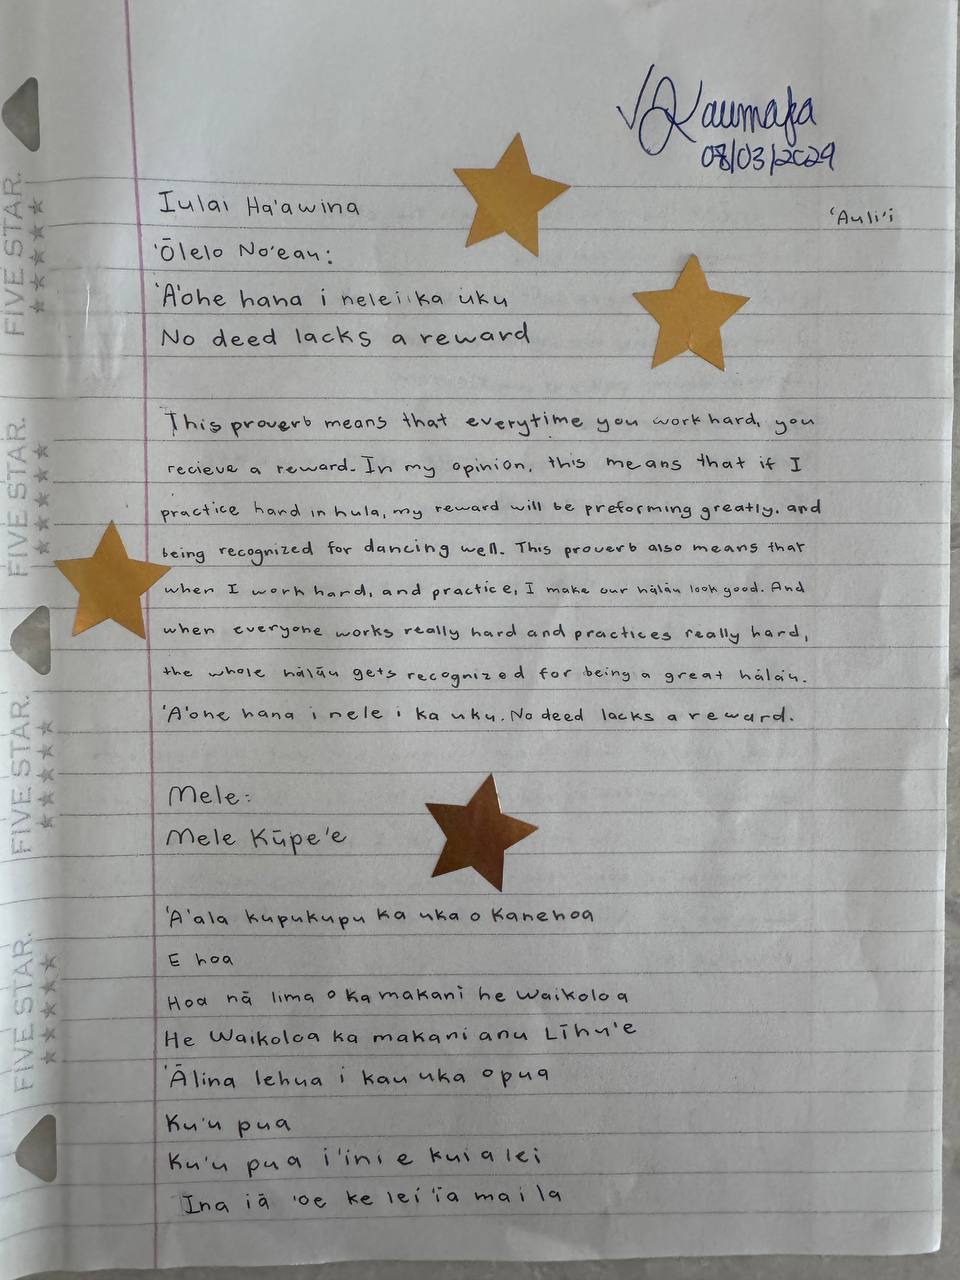 √Kaumaka
08/03/2029
Iulai Ha'awina
'Auli'i
'Ōlelo No'eau:
'A'ohe hana i nele i ka uku
No deed lacks a reward
This proverb means that everytime you work hard, you
recieve a reward. In my opinion, this means that if I
practice hard in hula, my reward will be preforming greatly. and
being recognized for dancing well. This proverb also means that
when I work hard, and practice, I make our hālau look good. And
when everyone works really hard and practices really hard,
the whole hālāu gets recognized for being a great hālāu.
'A'ohe hana i nele i ka uku. No deed lacks a reward.
Mele:
Mele Kūpe'e
'A'ala kupukupu ka uka o Kanehoa
E hoa
Hoa nā lima o ka makani he Waikoloa
He Waikoloa ka makani anu Līhu'e
'Ālina lehua i kau uka o pua
Ku'u pua
Ku'u pua i'ini e kui a lei
Ina iā 'oe ke lei 'ia mai la
FIVE STAR.
FIVE STAR.
FIVE STAR.
FIVE STAR.